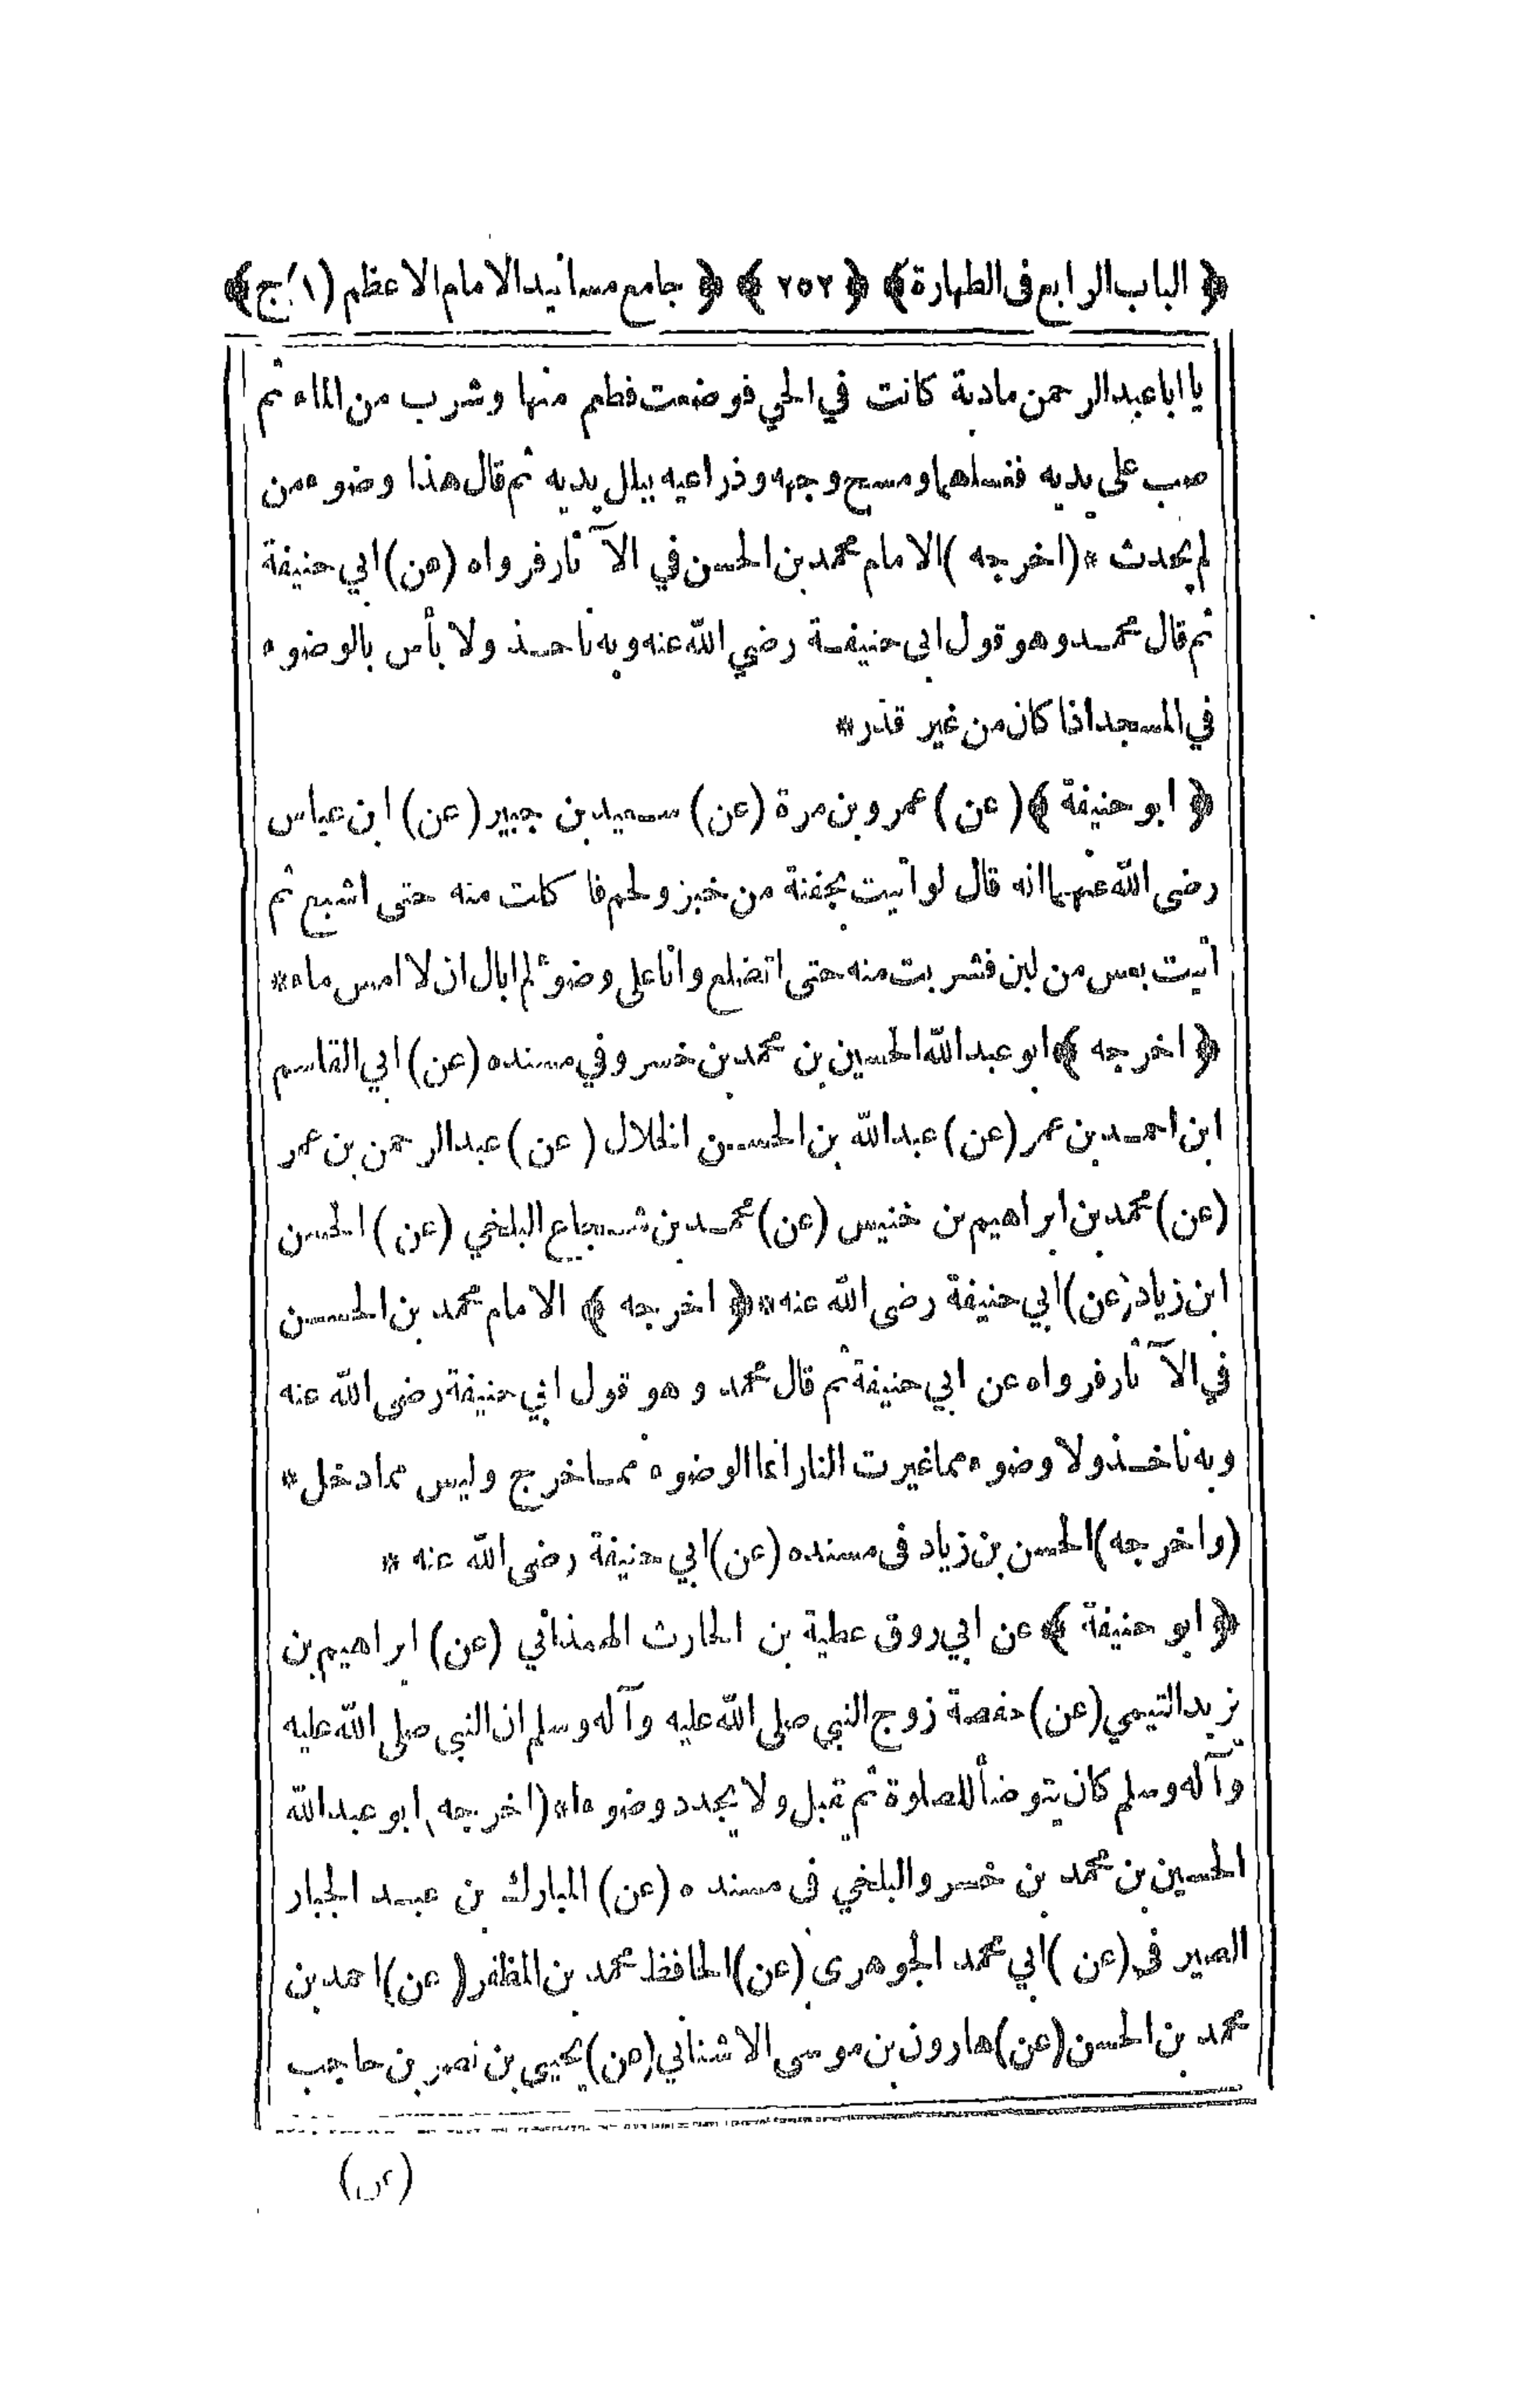 ﴿ الباب الرابع فى الطهارة ﴾ ﴿ ٢٥٢ ﴾ ﴿ جامع مسانيد الامام الاعظم (١/ج) ﴾
يا ابا عبد الرحمن مادبة كانت في الحي فوضعت فطعم منها وشرب من الماء ثم
صب على يديه فغسلهما ومسح وجهه وذراعيه ببلل يديه ثم قال هذا وضوء من
لم يحدث * (اخرجه) الامام محمد بن الحسن في الآثار فرواه (عن) ابي حنيفة
ثم قال محمد وهو قول ابى حنيفة رضي الله عنه وبه ناخذ ولا بأس بالوضوء
في المسجد اذا كان من غير قذر *
﴿ ابو حنيفة ﴾ (عن) عمرو بن مرة (عن) سعيد بن جبير (عن) ابن عباس
رضى الله عنهما انه قال لو اتيت بجفنة من خبز ولحم فاكلت منه حتى اشبع ثم
اتيت بعس من لبن فشربت منه حتى اتضلع وانا على وضوء لم ابال ان لا امس ماء *
﴿ اخرجه ﴾ ابو عبد الله الحسين بن محمد بن خسرو في مسنده (عن) ابي القاسم
ابن احمد بن عمر (عن) عبد الله بن الحسن الخلال (عن) عبد الرحمن بن عمر
(عن) محمد بن ابراهيم بن خنيس (عن) محمد بن شجاع البلخي (عن) الحسن
ابن زياد (عن) ابي حنيفة رضى الله عنه * ﴿ اخرجه ﴾ الامام محمد بن الحسن
في الآثار فرواه عن ابي حنيفة ثم قال محمد وهو قول ابي حنيفة رضى الله عنه
وبه ناخذ ولا وضوء مما غيرت النار انما الوضوء مما خرج وليس مما دخل *
(واخرجه) الحسن بن زياد فى مسنده (عن) ابي حنيفة رضى الله عنه *
﴿ ابو حنيفة ﴾ عن ابي روق عطية بن الحارث الهمذاني (عن) ابراهيم بن
يزيد التيمي (عن) حفصة زوج النبي صلى الله عليه وآله وسلم ان النبي صلى الله عليه
وآله وسلم كان يتوضأ للصلوة ثم يقبل ولا يجدد وضوءا * (اخرجه) ابو عبد الله
الحسين بن محمد بن خسرو البلخي فى مسنده (عن) المبارك بن عبد الجبار
الصيرفى (عن) ابي محمد الجوهرى (عن) الحافظ محمد بن المظفر (عن) احمد بن
محمد بن الحسن (عن) هارون بن موسى الاشناني (عن) يحيى بن نصر بن حاجب